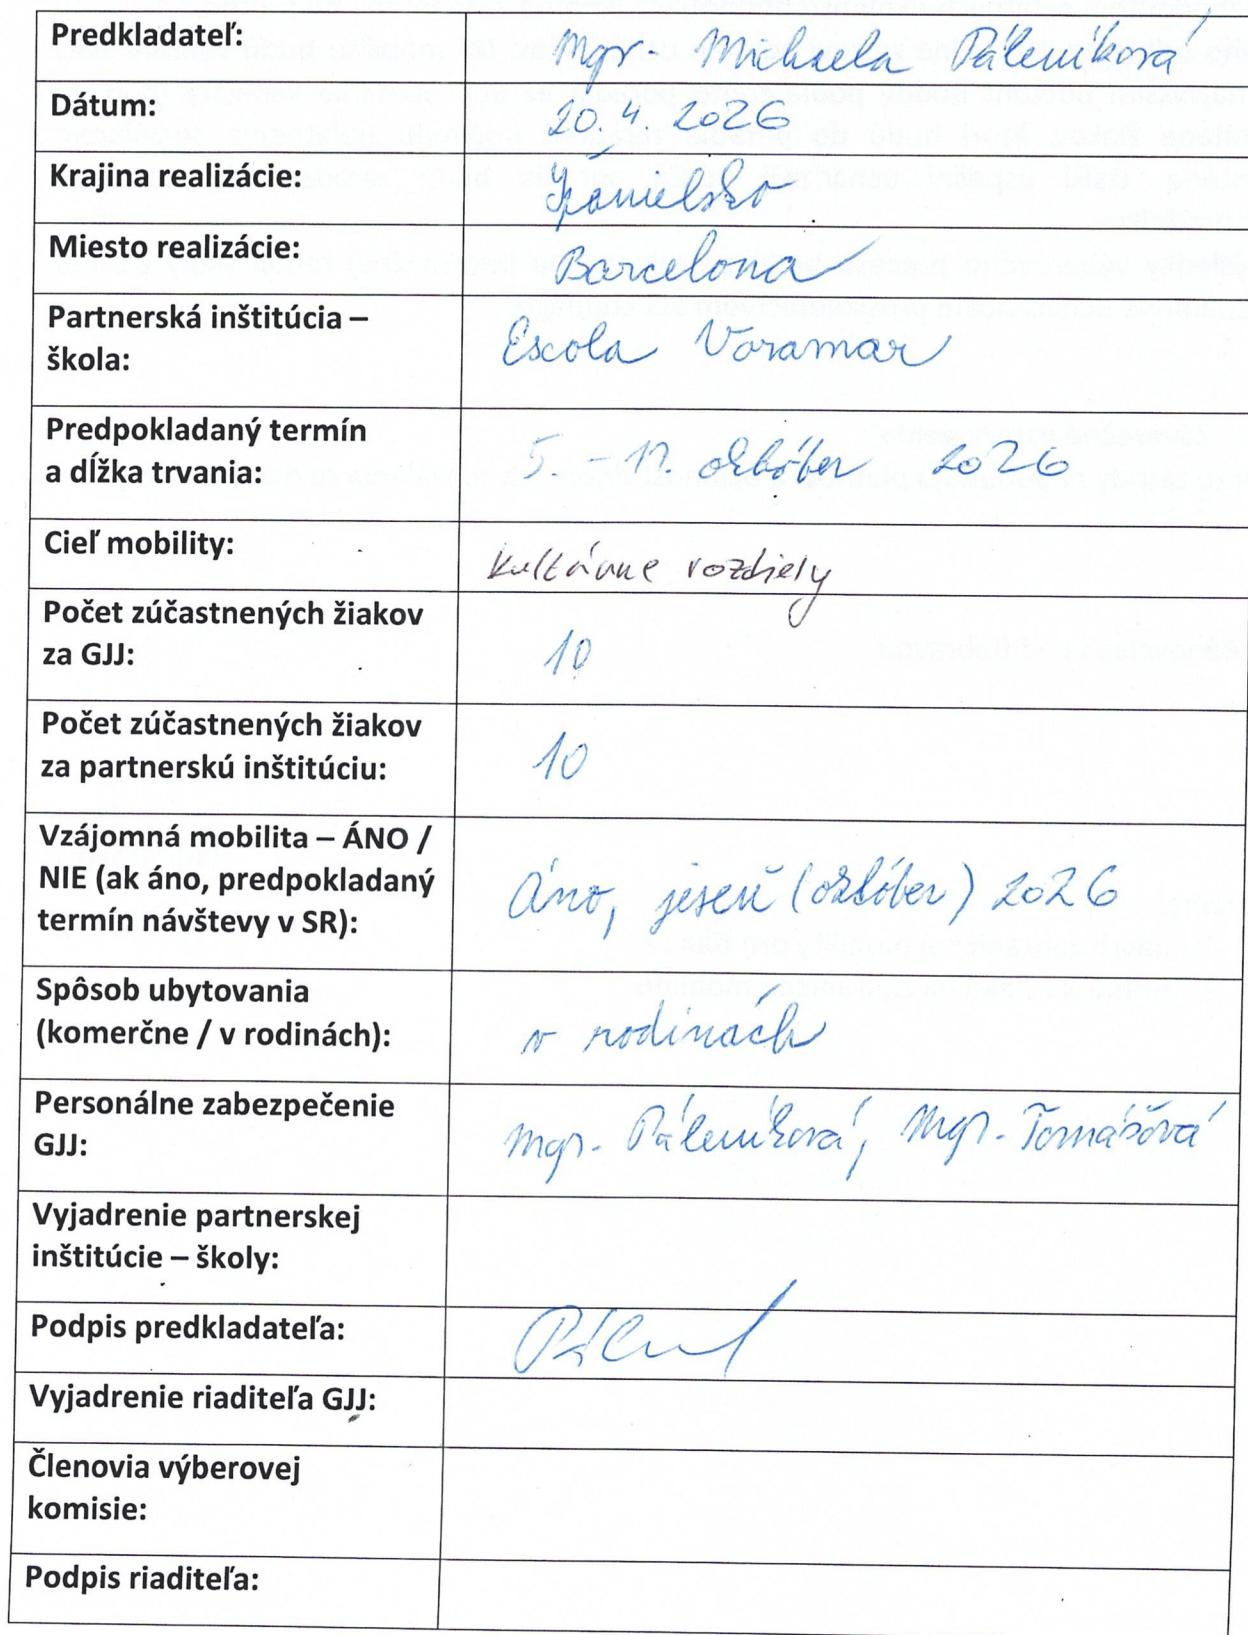 Predkladateľ:
Mgr. Michaela Páleníková
Dátum:
20. 4. 2026
Krajina realizácie:
Španielsko
Miesto realizácie:
Barcelona
Partnerská inštitúcia –
škola:
Escola Voramar
Predpokladaný termín
a dĺžka trvania:
október 2026
Cieľ mobility:
kultúrne rozdiely
Počet zúčastnených žiakov
za GJJ:
10
Počet zúčastnených žiakov
za partnerskú inštitúciu:
10
Vzájomná mobilita – ÁNO /
NIE (ak áno, predpokladaný
termín návštevy v SR):
Áno, jeseň (október) 2026
Spôsob ubytovania
(komerčne / v rodinách):
v rodinách
Personálne zabezpečenie
GJJ:
Mgr. Páleníková, Mgr. Tomášová
Vyjadrenie partnerskej
inštitúcie – školy:
Podpis predkladateľa:
Vyjadrenie riaditeľa GJJ:
Členovia výberovej
komisie:
Podpis riaditeľa: